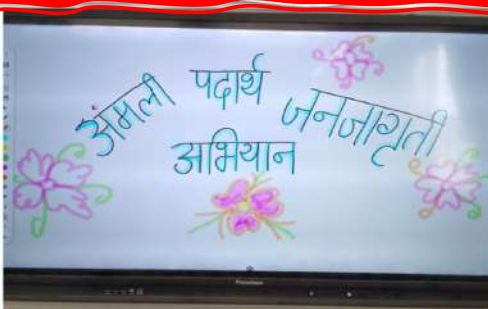 अंमली पदार्थ जनजागृती
अभियान